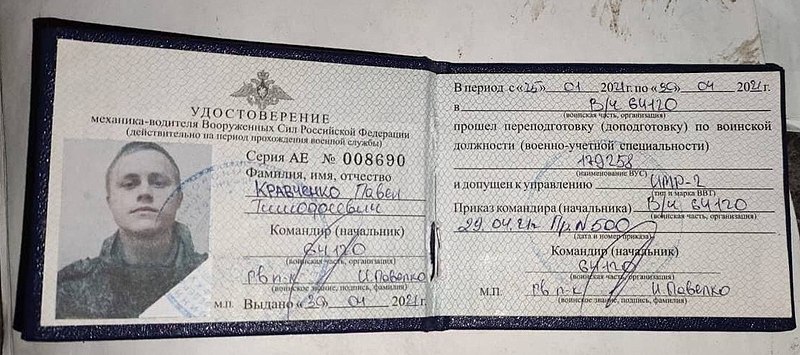 УДОСТОВЕРЕНИЕ
механика-водителя Вооруженных Сил Российской Федерации
(действительно на период прохождения военной службы)
Серия АЕ № 008690
Фамилия, имя, отчество
Кравченко Павел
Тимофеевич
Командир (начальник)
64120
(воинская часть, организация)
гв п-к И.Павелко
(воинское звание, подпись, фамилия)
М.П. Выдано «30» 04 2021г.
В период с «25» 01 2021г. по «30» 04 2021г.
в В/ч 64120
(воинская часть, организация)
прошел переподготовку (доподготовку) по воинской
должности (военно-учетной специальности)
179258
(наименование ВУС)
и допущен к управлению ИМР-2
(тип и марка ВВТ)
Приказ командира (начальника) В/ч 64120
(воинская часть, организация)
29.04.21г Пр.N500
(дата и номер приказа)
Командир (начальник)
64120
(воинская часть, организация)
М.П. гв п-к И.Павелко
(воинское звание, подпись, фамилия)